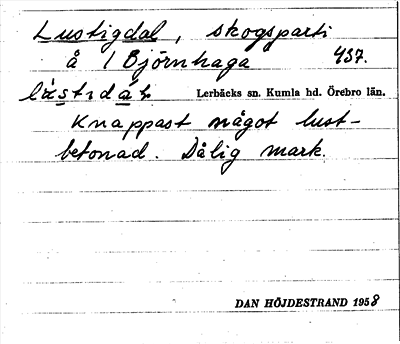 Lustigdal, skogsparti
å 1 Björnhaga 437.
Lerbäcks sn. Kumla hd. Örebro län.
Knappast något lust-
betonad. Dålig mark.
DAN HÖJDESTRAND 1958